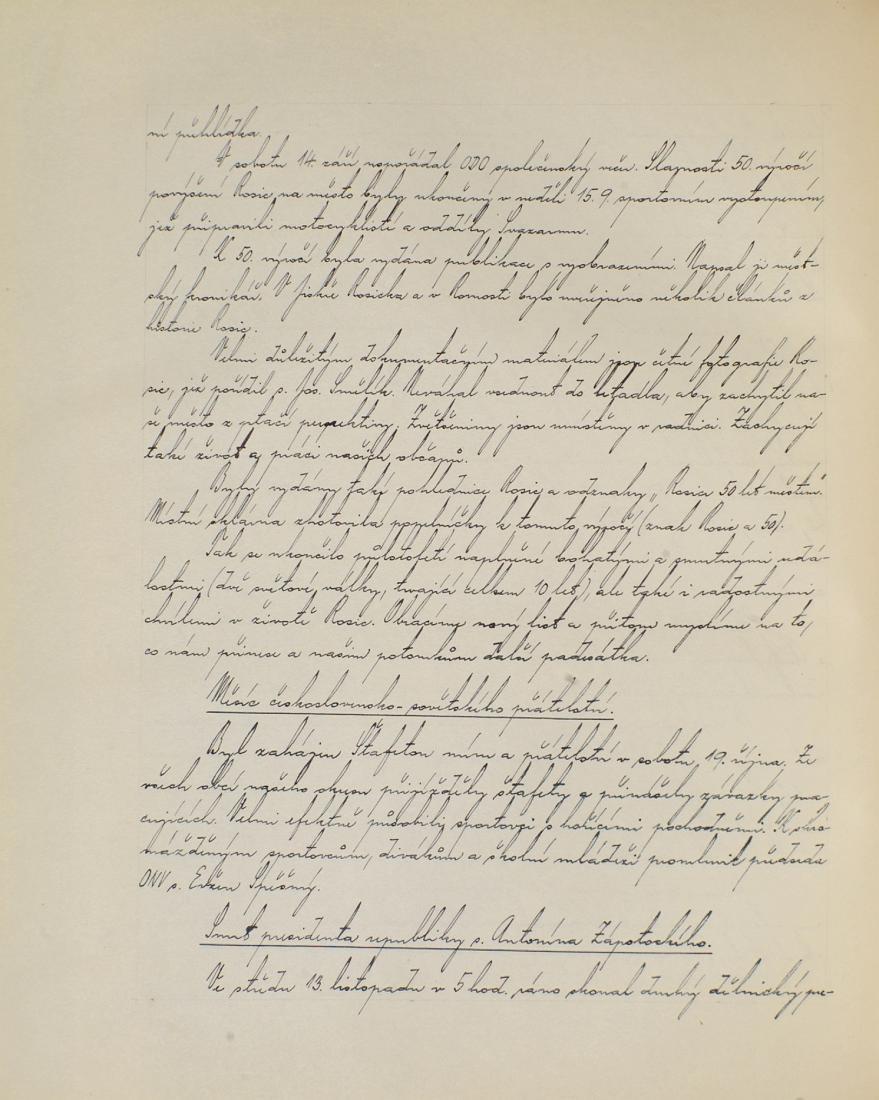 ní přehlídka.
V sobotu 14. září uspořádal ODO společenský večer. Slavnosti 50. výročí
povýšení Rosic na město byly ukončeny v neděli 15. 9. sportovním vystoupením,
jež připravili motocyklisté a oddíly Svazarmu.
K 50. výročí byla vydána publikace s vyobrazeními. Napsal ji měst-
ský kronikář. V Jiskře Rosicka a v Rovnosti bylo uveřejněno několik článků z
historie Rosic.
Velmi důležitým dokumentačním materiálem jsou četné fotografie Ro-
sic, jež pořídil s. Jos. Smělík. Neváhal vsednout do letadla, aby zachytil na-
še město z ptačí perspektivy. Zvětšeniny jsou umístěny v radnici. Zachycují
také život a práci našich občanů.
Byly vydány také pohlednice Rosic a odznaky „Rosice 50 let městem“.
Místní sklárna zhotovila popelníčky k tomuto výročí (znak Rosic a 50).
Tak se ukončilo půlstoletí naplněné bohatými a smutnými udá-
lostmi (dvě světové války, trvající celkem 10 let), ale také i radostnými
chvílemi v životě Rosic. Obracíme nový list a přitom myslíme na to,
co nám přinese a našim potomkům další padesátka.
Měsíc československo-sovětského přátelství.
Byl zahájen Štafetou míru a přátelství v sobotu 19. října. Ze
všech obcí našeho okresu přijížděly štafety a přinášely závazky pra-
cujících. Velmi efektně působili sportovci s hořícími pochodněmi. K shro-
mážděným sportovcům, divákům a školní mládeži promluvil předseda
ONV s. Evžen Spěšný.
Smrt presidenta republiky s. Antonína Zápotockého.
Ve středu 13. listopadu v 5 hod. ráno skonal druhý dělnický pre-